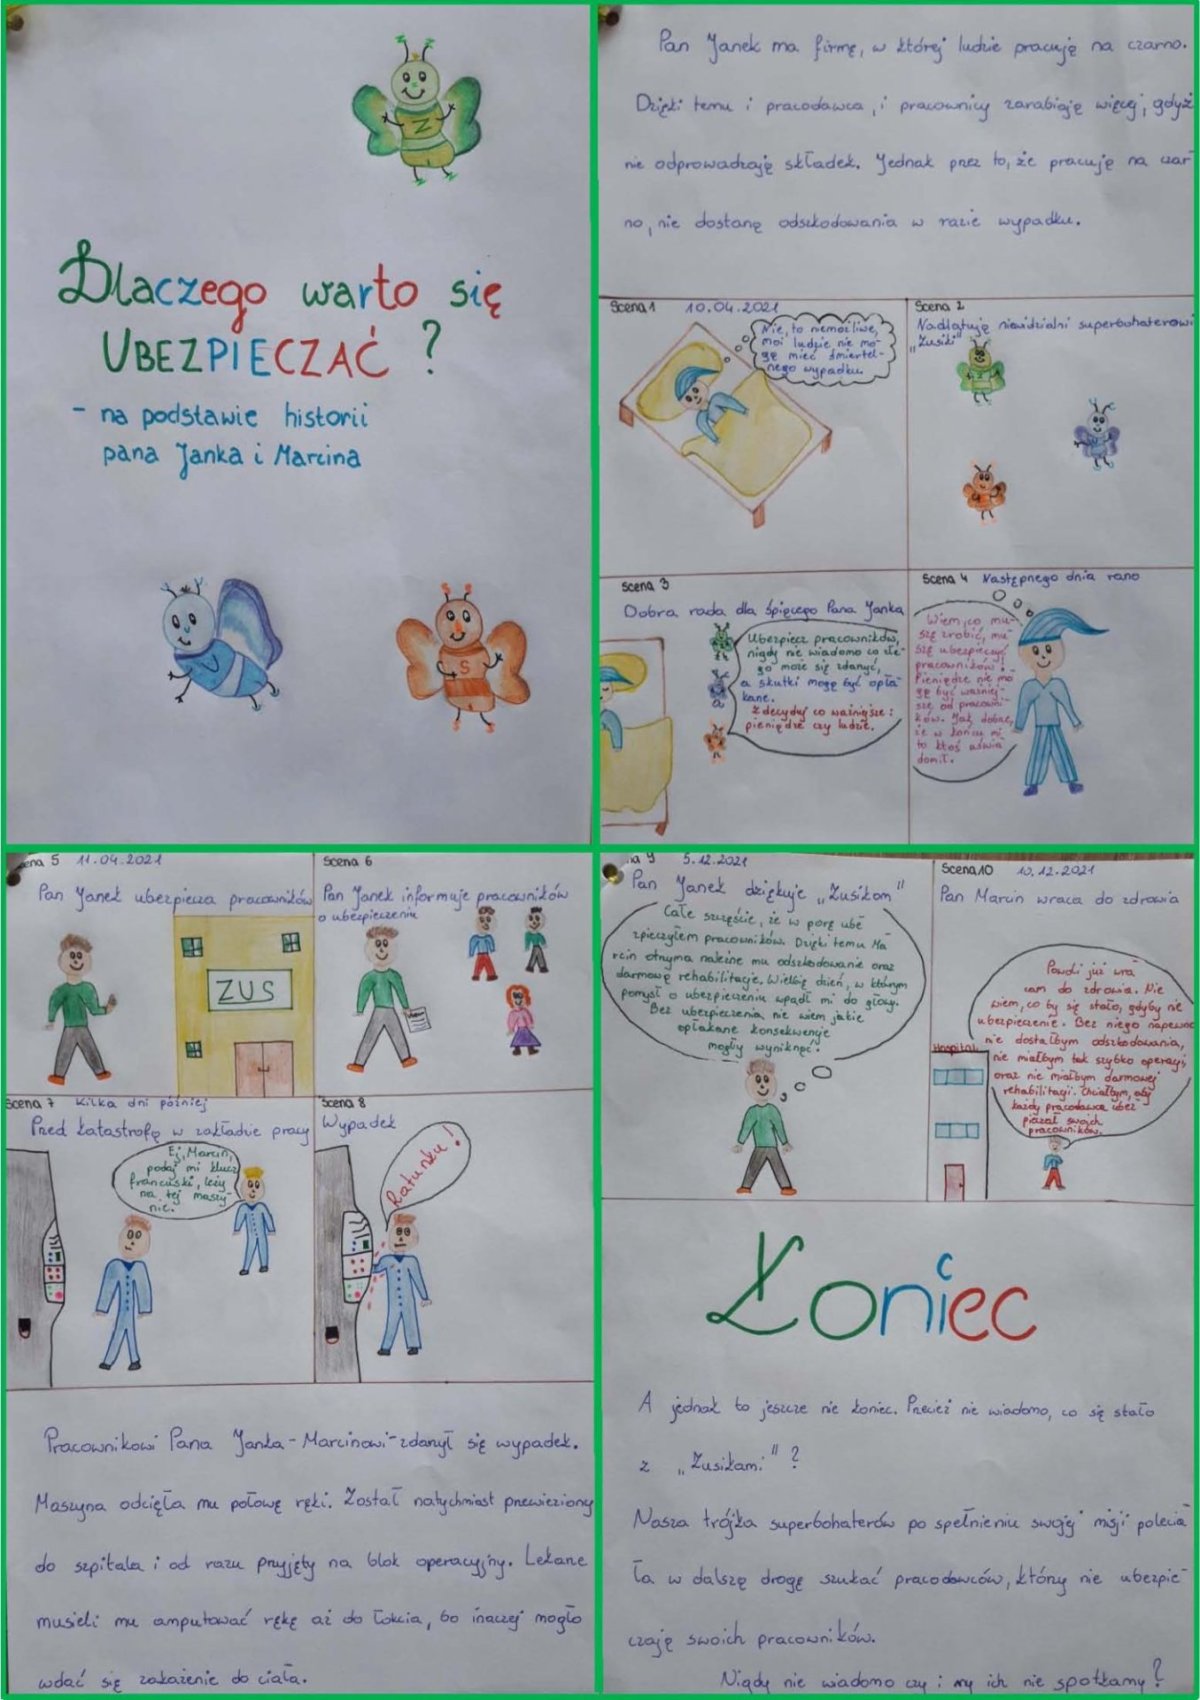 Z
Dlaczego warto się
UBEZPIECZAĆ?
- na podstawie historii
pana Janka i Marcina
S
Pan Janek ma firmę, w której ludzie pracuję na czarno.
Dzięki temu i pracodawca, i pracownicy zarabiaję więcej, gdyż
nie odprowadzaję składek. Jednak przez to, że pracuję na czar
no, nie dostanę odszkodowania w razie wypadku.
Scena 1 10.04.2021
Nie, to niemożliwe,
moi ludzie nie mo-
gę mieć śmiertel-
nego wypadku.
Scena 2
Nadlatuję niewidzialni superbohaterowi
"Zusiki"
Scena 3
Dobra rada dla śpięcego Pana Janka
Ubezpiecz pracowników,
nigdy nie wiadomo co złe-
go może się zdarzyć,
a skutki mogę być opła
kane.
Zdecyduj co ważniejsze:
pieniędze czy ludzie.
Scena 4 Następnego dnia rano
Wiem, co mu-
szę zrobić, mu
szę ubezpieczyć
pracowników!
Pieniędze nie mo
gę być ważniej-
sze od pracowni-
ków. Jak dobrze,
że w końcu mi
to ktoś uświa
domił.
Scena 5 11.04.2021
Pan Janek ubezpiecza pracowników
ZUS
Scena 6
Pan Janek informuje pracowników
o ubezpieczeniu
Scena 7 Kilka dni później
Przed katastrofę w zakładzie pracy
Ej, Marcin,
podaj mi klucz
francuski, leży
na tej maszy-
nie.
Scena 8
Wypadek
Ratunku!
Pracownikowi Pana Janka - Marcinowi - zdarzył się wypadek.
Maszyna odcięła mu połowę ręki. Został natychmiast przewieziony
do szpitala i od razu przyjęty na blok operacyjny. Lekarze
musieli mu amputować rękę aż do łokcia, bo inaczej mogło
wdać się zakażenie do ciała.
na 9 5.12.2021
Pan Janek dziękuje "Zusikom"
Całe szczęście, że w porę ube
zpieczyłem pracowników. Dzięki temu Ma
rcin otrzyma należne mu odszkodowanie oraz
darmowę rehabilitację. Wielbię dzień, w którym
pomysł o ubezpieczeniu wpadł mi do głowy.
Bez ubezpieczenia nie wiem jakie
opłakane konsekwencje
mogły wyniknęć.
Scena 10 10.12.2021
Pan Marcin wraca do zdrowia
Powoli już wra
cam do zdrowia. Nie
wiem, co by się stało, gdyby nie
ubezpieczenie. Bez niego napewno
nie dostałbym odszkodowania,
nie miałbym tak szybko operacji
oraz nie miałbym darmowej
rehabilitacji. Chciałbym, aby
każdy pracodawca ubez
pieczał swoich
pracowników.
Hospital
Koniec
A jednak to jeszcze nie koniec. Przecież nie wiadomo, co się stało
z "Zusikami"?
Nasza trójka superbohaterów po spełnieniu swojej misji polecia
ła w dalszę drogę szukać pracodawców, który nie ubezpie-
czaję swoich pracowników.
Nigdy nie wiadomo czy i my ich nie spotkamy?